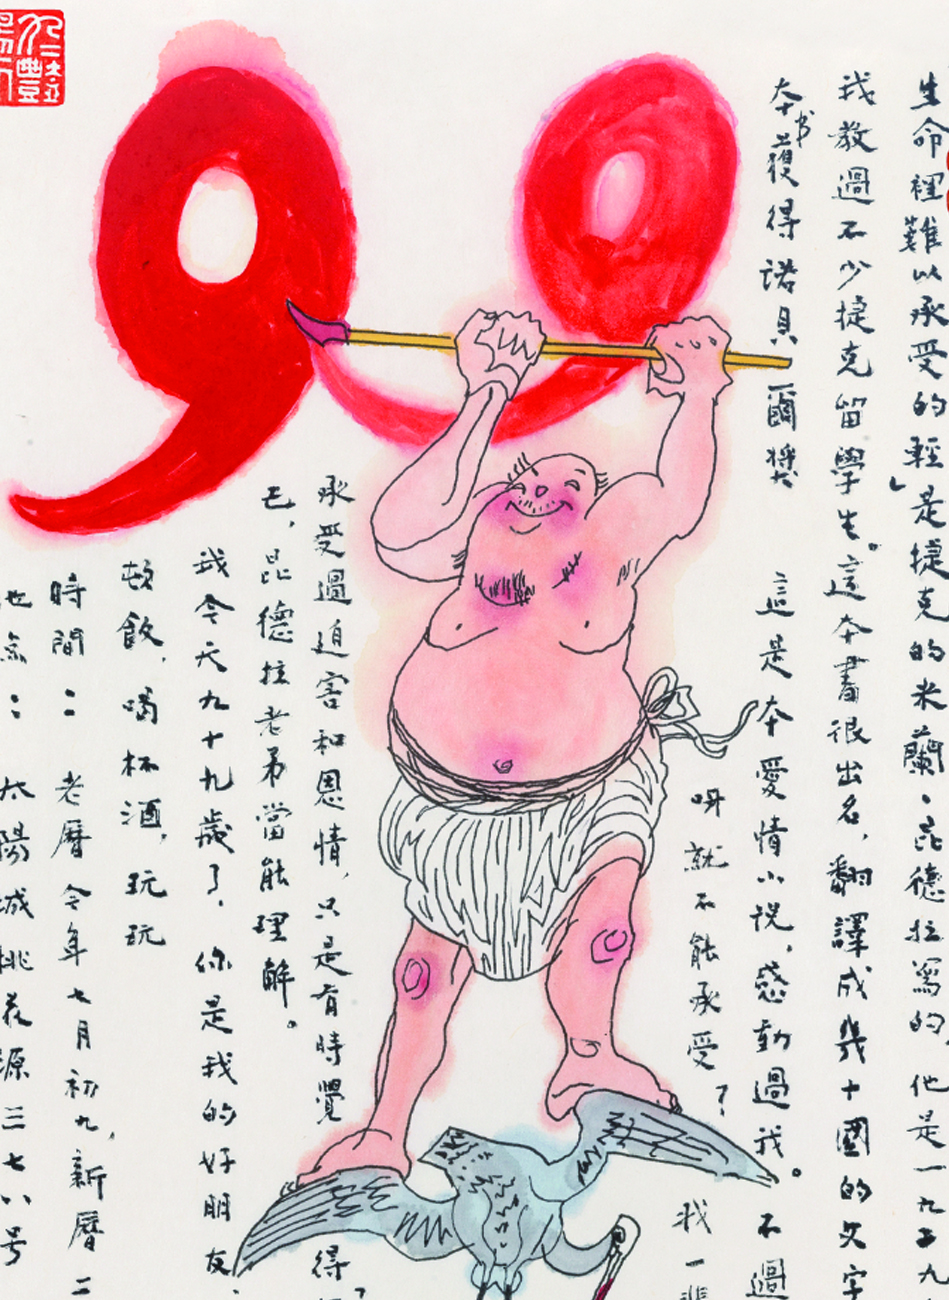 99
生命裡難以承受的輕」是捷克的米蘭·昆德拉寫的,他是一九五九
我教過不少捷克留學生。這本書很出名,翻譯成幾十國的文字
本書獲得諾貝爾獎 這是本愛情小说,感動過我。不過
呀就不能承受? 我一悲
承受過迫害和恩情,只是有時覺得?
已,昆德拉老弟當能理解。
我今天九十九歲了,你是我的好朋友,
頓飯,喝杯酒,玩玩
時間:老曆今年七月初九,新曆二
地点:太陽城桃花源三七八号